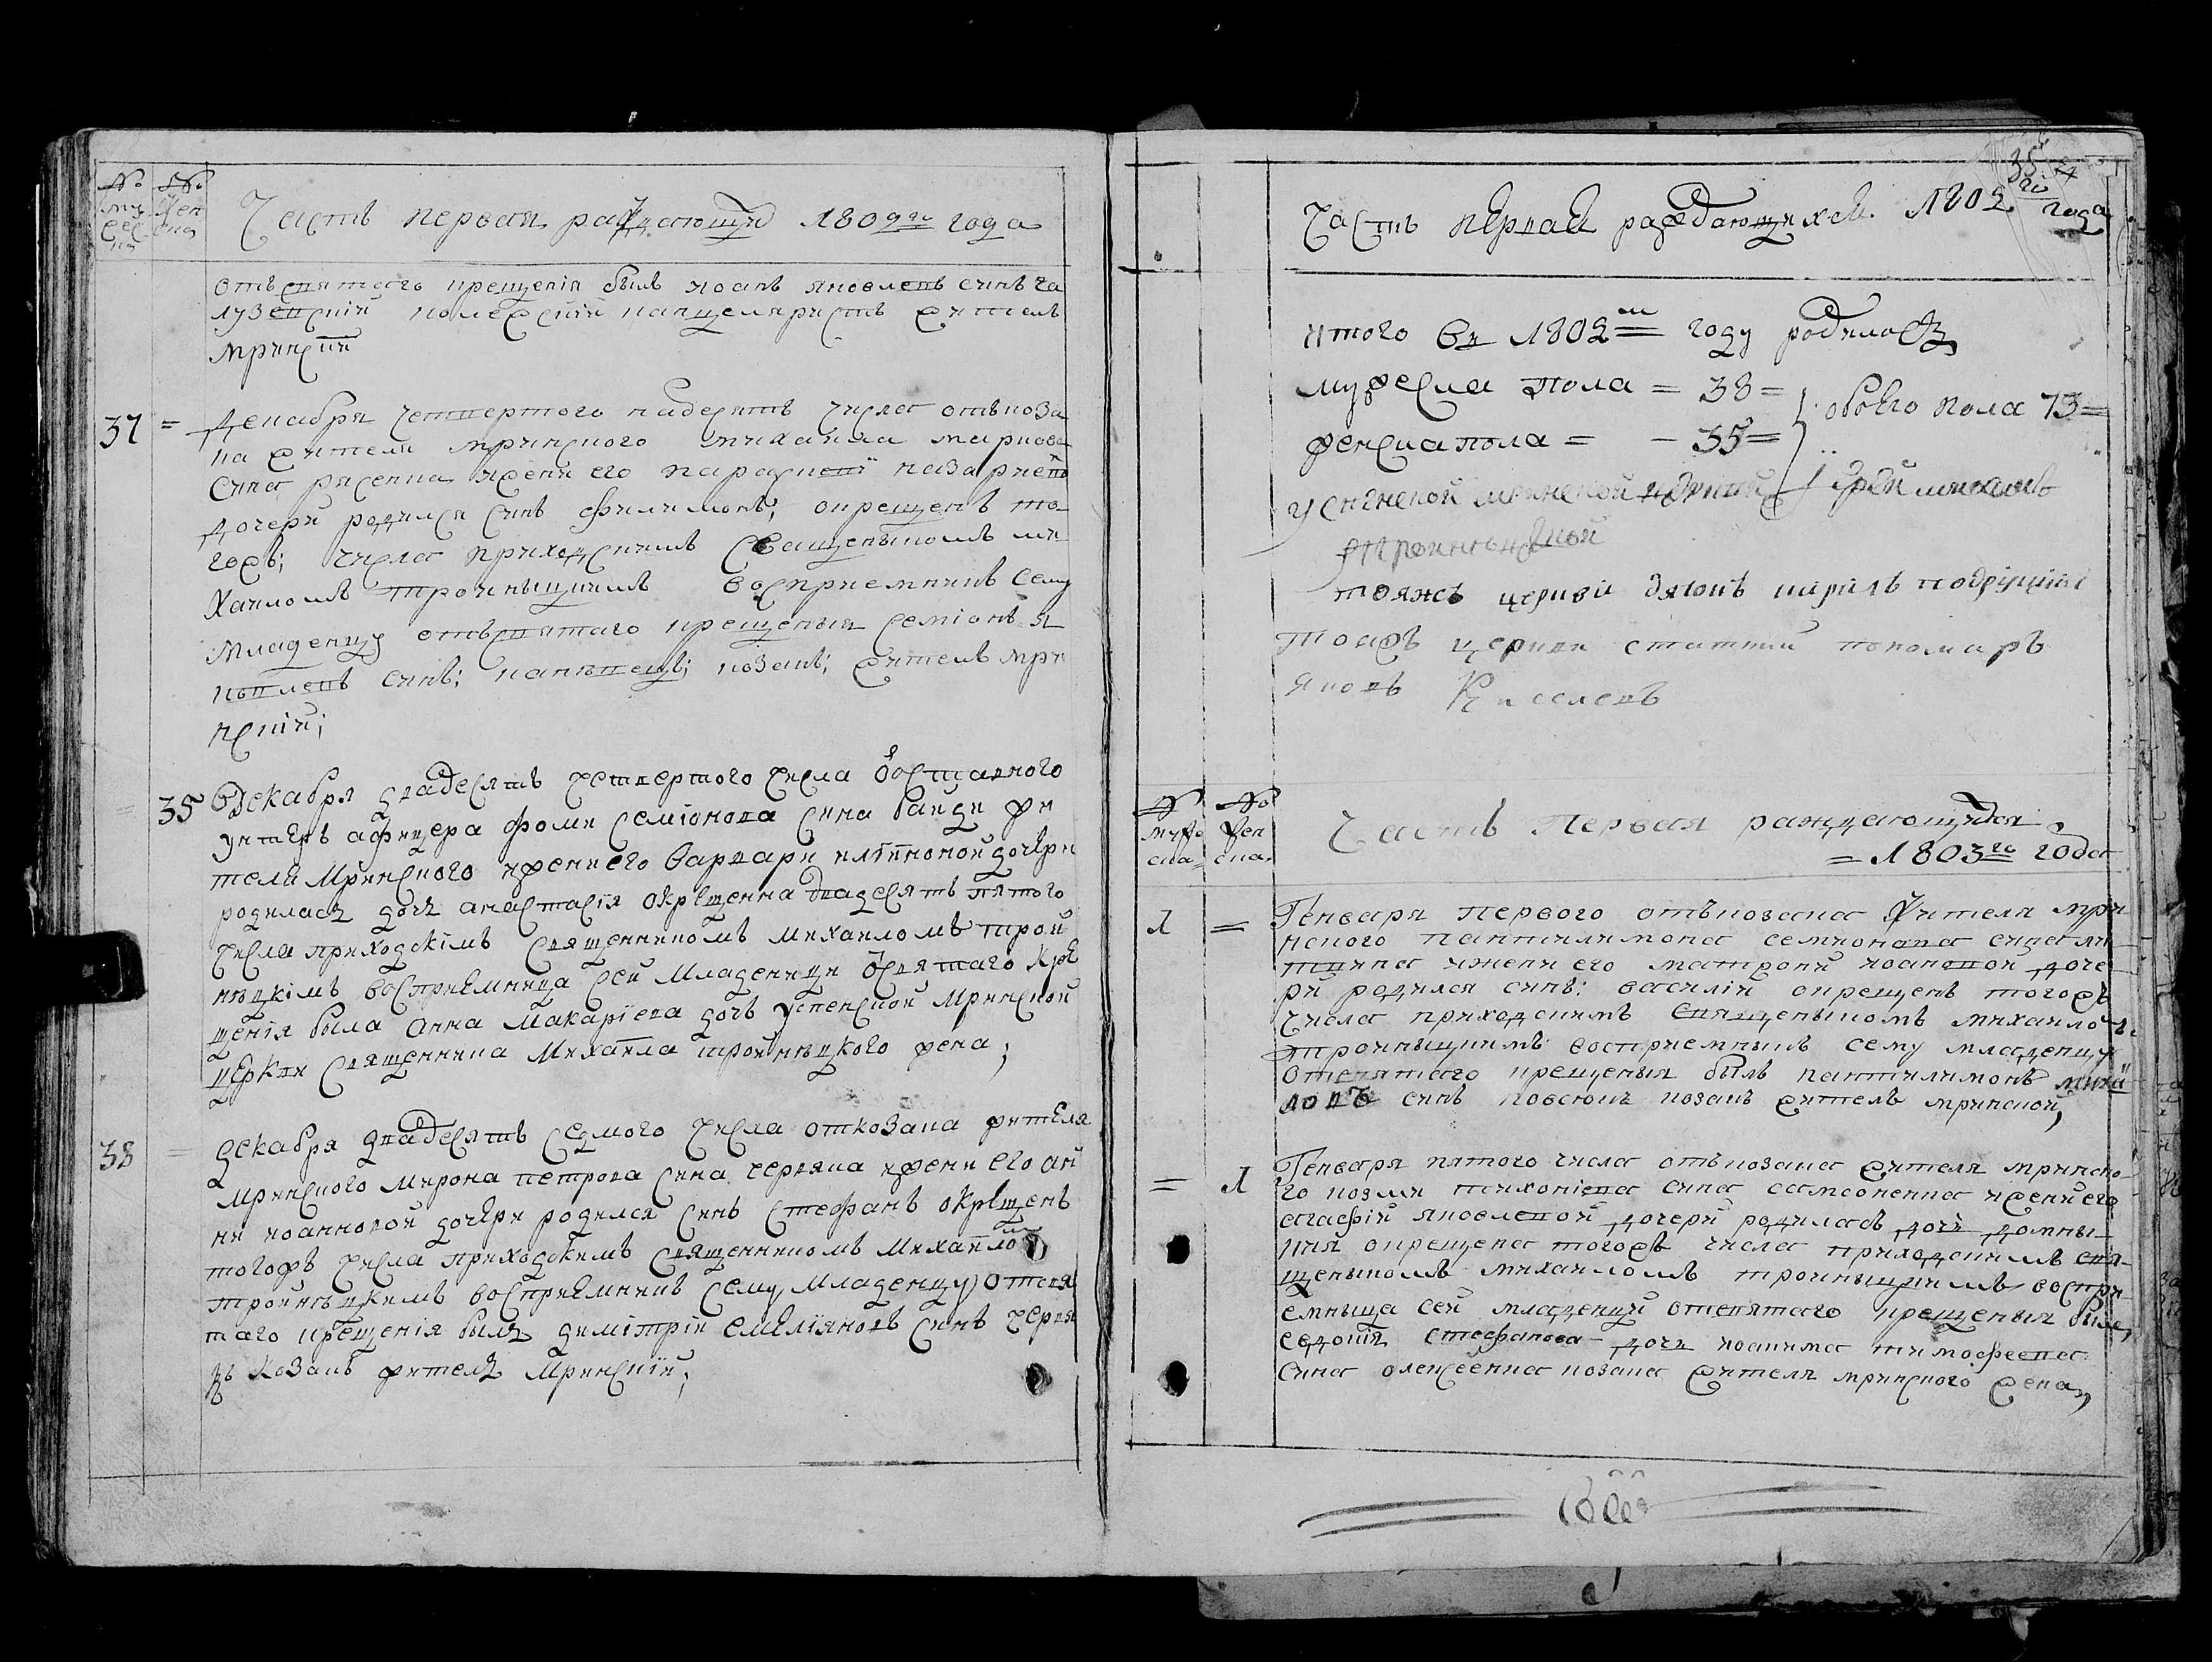 № №
муж жен
еска ска
Часть первая раждающихся 1802го года
отъ святаго крещенія былъ Іоанъ яковлевъ синъ га
лузевскій колежскій канцеляристъ житель
мринскій
37 = Декабря четвертого надесять числа отъ коза
ка жителя мринского михаила маркова
сина рясенка ижени его параскеви назариевой
дочери родился синъ филимонъ; окрещенъ то
гожъ; числа приходскимъ священыкомъ ми
хаиломъ тройныцкимъ восприемникъ сему
младенцу отъ святаго крещеныя семіонъ я
ковлевъ синъ; козакъ; житель мри
нскій;
35 Декабря двадесять четвертого числа отставного
унтеръ афицера фоми семіонова сина жи
теля Мринского ижени его варвари дочери
родилась дочь анастасія окрещенна двадесять пятого
числа приходскімъ священникомъ михаиломъ трой
нѣцкімъ восприемница сей младеници от святаго кре
щенія была анна макаріева дочъ успенской мринской
церкви священника михаила тройнѣцкого жена;
38 = Декабря двадесять седмого числа отъ козака жителя
мринского мирона петрова сина червяка ижени его ан
ни иоанновой дочери родился синъ стефанъ окрещенъ
тогожъ числа приходскимъ священникомъ михаиломъ
тройнѣцкимъ восприемникъ сему младенцу отсвя
таго крещенія былъ димітрій емеліяновъ синъ червя
къ козакъ житель мринскій;
35
Часть первая раждающихся 1802го года
итого въ 1802м году родилось
мужеска пола = 38 =
обоего пола 73 =
женска пола = - 35 =
успенской мринской церкви іерей михаилъ
тройнѣцкой
тояжъ церкви дяконъ кирилъ
тояжъ церкви статній пономаръ
яковъ Киселевъ
№ №
мужe жен
ска ска
Часть Первая раждающихся
= 1803го года
1 = Генваря первого отъ козака жителя мри
нского пантилимона семионова сина
ижени его матрони иоановой доче
ри родился синъ: василій окрещенъ тогожъ
числа приходскимъ священыкомъ михаило
тройныцкимъ восприемныкъ сему младенцу
отсвятаго крещеныя былъ пантилимонъ михай
ловъ синъ козакъ житель мринской,
= 1 Генваря пятого числа отъ козака жителя мринско
го козми тихоніева сина самсоненка ижени его
агафій яковлевой дочери родилась дочь домны
кия окрещена тогожъ числа приходскимъ свя
щеныкомъ михаиломъ тройныцкимъ воспри
емныца сей младенци отсвятаго крещеныя была
евдокія стефанова дочь иоакима тимофеева
сина олексеенка козака жителя мринского жена,